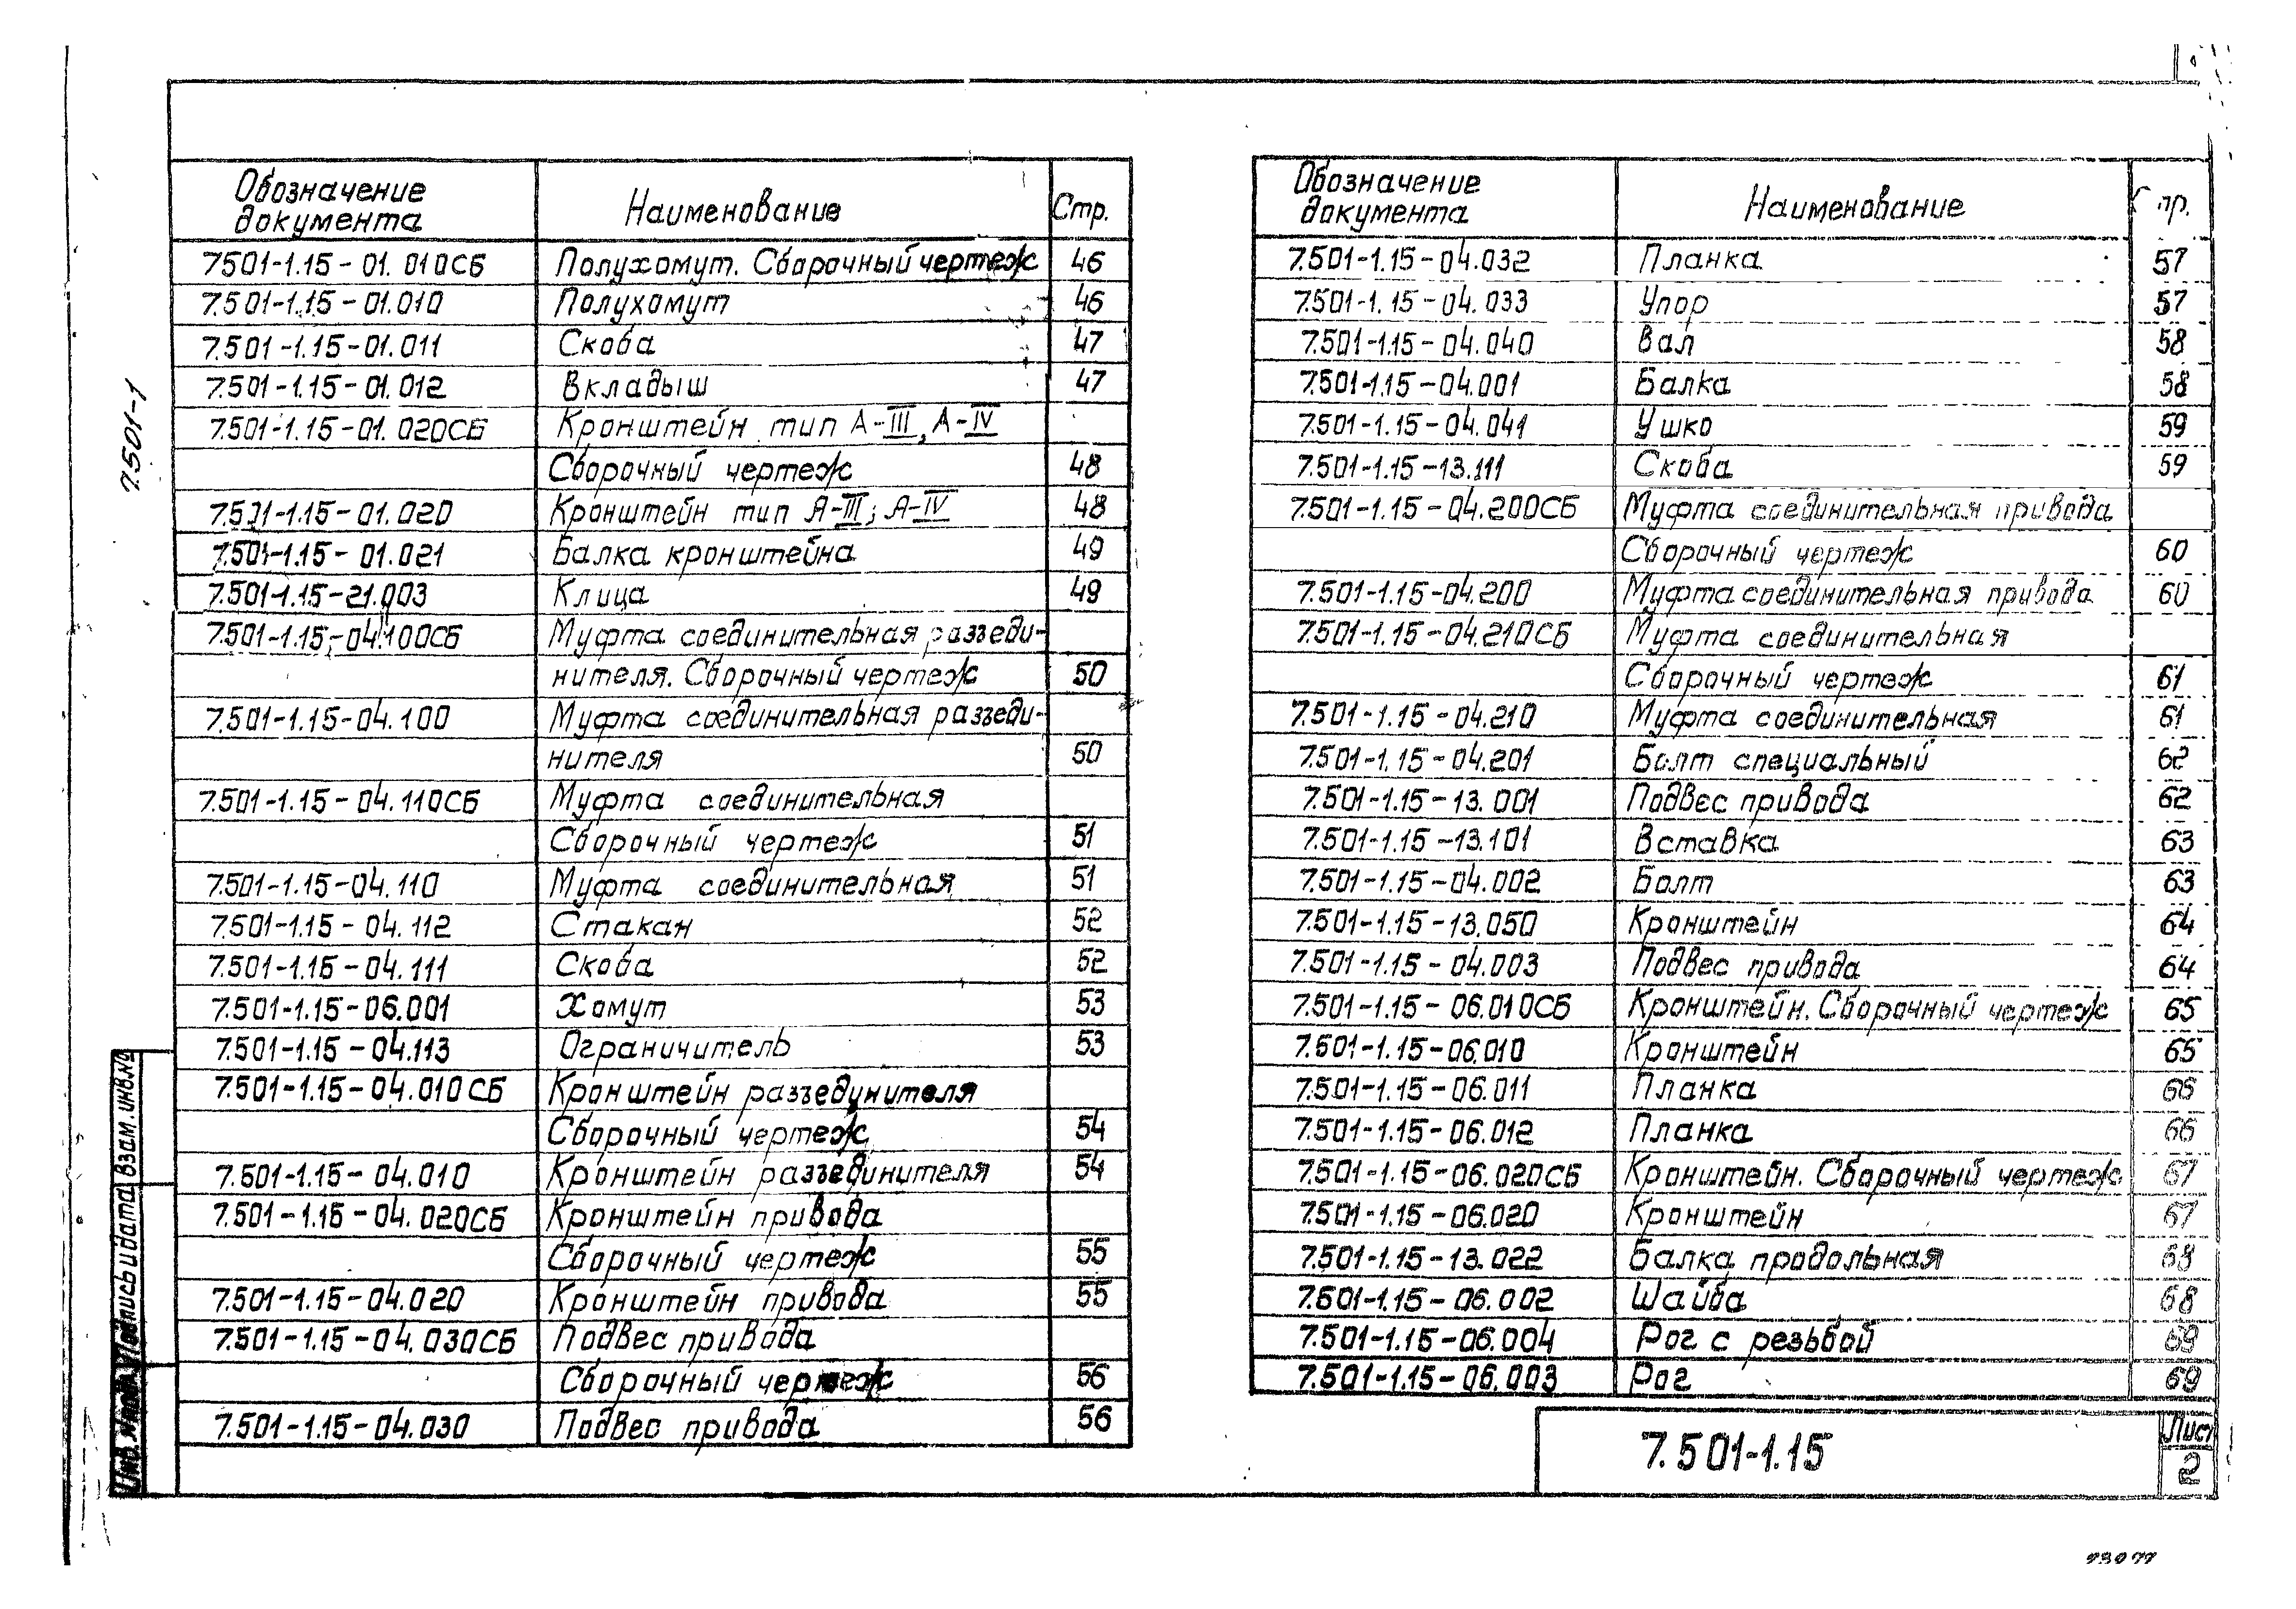 Обозначение документа Наименование Стр.
7501-1.15-01.010СБ Полухомут. Сборочный чертеж 46
7.501-1.15-01.010 Полухомут 46
7.501-1.15-01.011 Скоба 47
7.501-1.15-01.012 Вкладыш 47
7.501-1.15-01.020СБ Кронштейн тип А-III, А-IV
Сборочный чертеж 48
7.501-1.15-01.020 Кронштейн тип А-III; А-IV 48
7.501-1.15-01.021 Балка кронштейна 49
7.501-1.15-21.003 Клица 49
7.501-1.15-04.100СБ Муфта соединительная разъеди-
нителя. Сборочный чертеж 50
7.501-1.15-04.100 Муфта соединительная разъеди-
нителя 50
7.501-1.15-04.110СБ Муфта соединительная
Сборочный чертеж 51
7.501-1.15-04.110 Муфта соединительная 51
7.501-1.15-04.112 Стакан 52
7.501-1.15-04.111 Скоба 52
7.501-1.15-06.001 Хомут 53
7.501-1.15-04.113 Ограничитель 53
7.501-1.15-04.010СБ Кронштейн разъединителя
Сборочный чертеж 54
7.501-1.15-04.010 Кронштейн разъединителя 54
7.501-1.15-04.020СБ Кронштейн привода
Сборочный чертеж 55
7.501-1.15-04.020 Кронштейн привода 55
7.501-1.15-04.030СБ Подвес привода
Сборочный чертеж 56
7.501-1.15-04.030 Подвес привода 56
Обозначение документа Наименование пр.
7.501-1.15-04.032 Планка 57
7.501-1.15-04.033 Упор 57
7.501-1.15-04.040 Вал 58
7.501-1.15-04.001 Балка 58
7.501-1.15-04.041 Ушко 59
7.501-1.15-13.111 Скоба 59
7.501-1.15-04.200СБ Муфта соединительная привода
Сборочный чертеж 60
7.501-1.15-04.200 Муфта соединительная привода 60
7.501-1.15-04.210СБ Муфта соединительная
Сборочный чертеж 61
7.501-1.15-04.210 Муфта соединительная 61
7.501-1.15-04.201 Болт специальный 62
7.501-1.15-13.001 Подвес привода 62
7.501-1.15-13.101 Вставка 63
7.501-1.15-04.002 Болт 63
7.501-1.15-13.050 Кронштейн 64
7.501-1.15-04.003 Подвес привода 64
7.501-1.15-06.010СБ Кронштейн. Сборочный чертеж 65
7.501-1.15-06.010 Кронштейн 65
7.501-1.15-06.011 Планка 66
7.501-1.15-06.012 Планка 66
7.501-1.15-06.020СБ Кронштейн. Сборочный чертеж 67
7.501-1.15-06.020 Кронштейн 67
7.501-1.15-13.022 Балка продольная 68
7.501-1.15-06.002 Шайба 68
7.501-1.15-06.004 Рог с резьбой 69
7.501-1.15-06.003 Рог 69
7.501-1.15 Лист 2
7.501-1
Инв. № подл. Подпись и дата Взам. инв. №